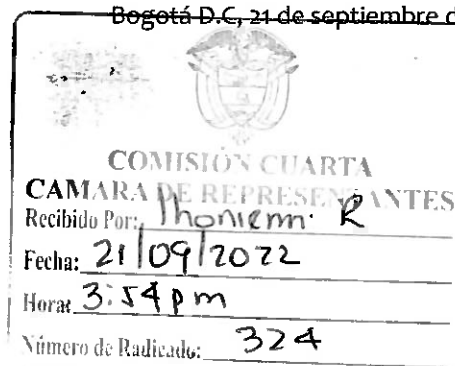 Bogotá D.C, 21 de septiembre d
COMISIÓN CUARTA
CAMARA DE REPRESENTANTES
Recibido Por: R
Fecha: 21/09/2022
Hora: 3:54 pm
Número de Radicado: 324